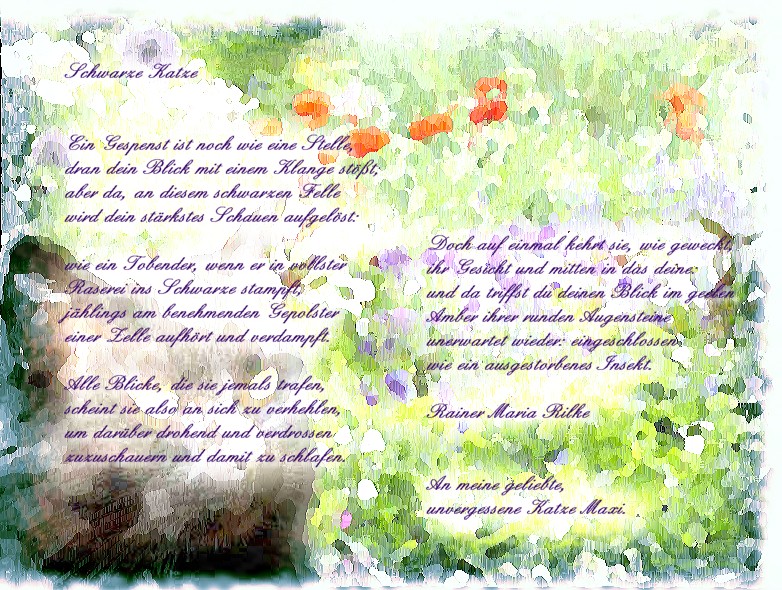 Schwarze Katze
Ein Gespenst ist noch wie eine Stelle,
dran dein Blick mit einem Klange stößt;
aber da, an diesem schwarzen Felle
wird dein stärkstes Schauen aufgelöst:
wie ein Tobender, wenn er in vollster
Raserei ins Schwarze stampft,
jählings am benehmenden Gepolster
einer Zelle aufhört und verdampft.
Alle Blicke, die sie jemals trafen,
scheint sie also an sich zu verhehlen,
um darüber drohend und verdrossen
zuzuschauern und damit zu schlafen.
Doch auf einmal kehrt sie, wie geweckt,
ihr Gesicht und mitten in das deine:
und da triffst du deinen Blick im geelen
Amber ihrer runden Augensteine
unerwartet wieder: eingeschlossen
wie ein ausgestorbenes Insekt.
Rainer Maria Rilke
An meine geliebte,
unvergessene Katze Maxi.